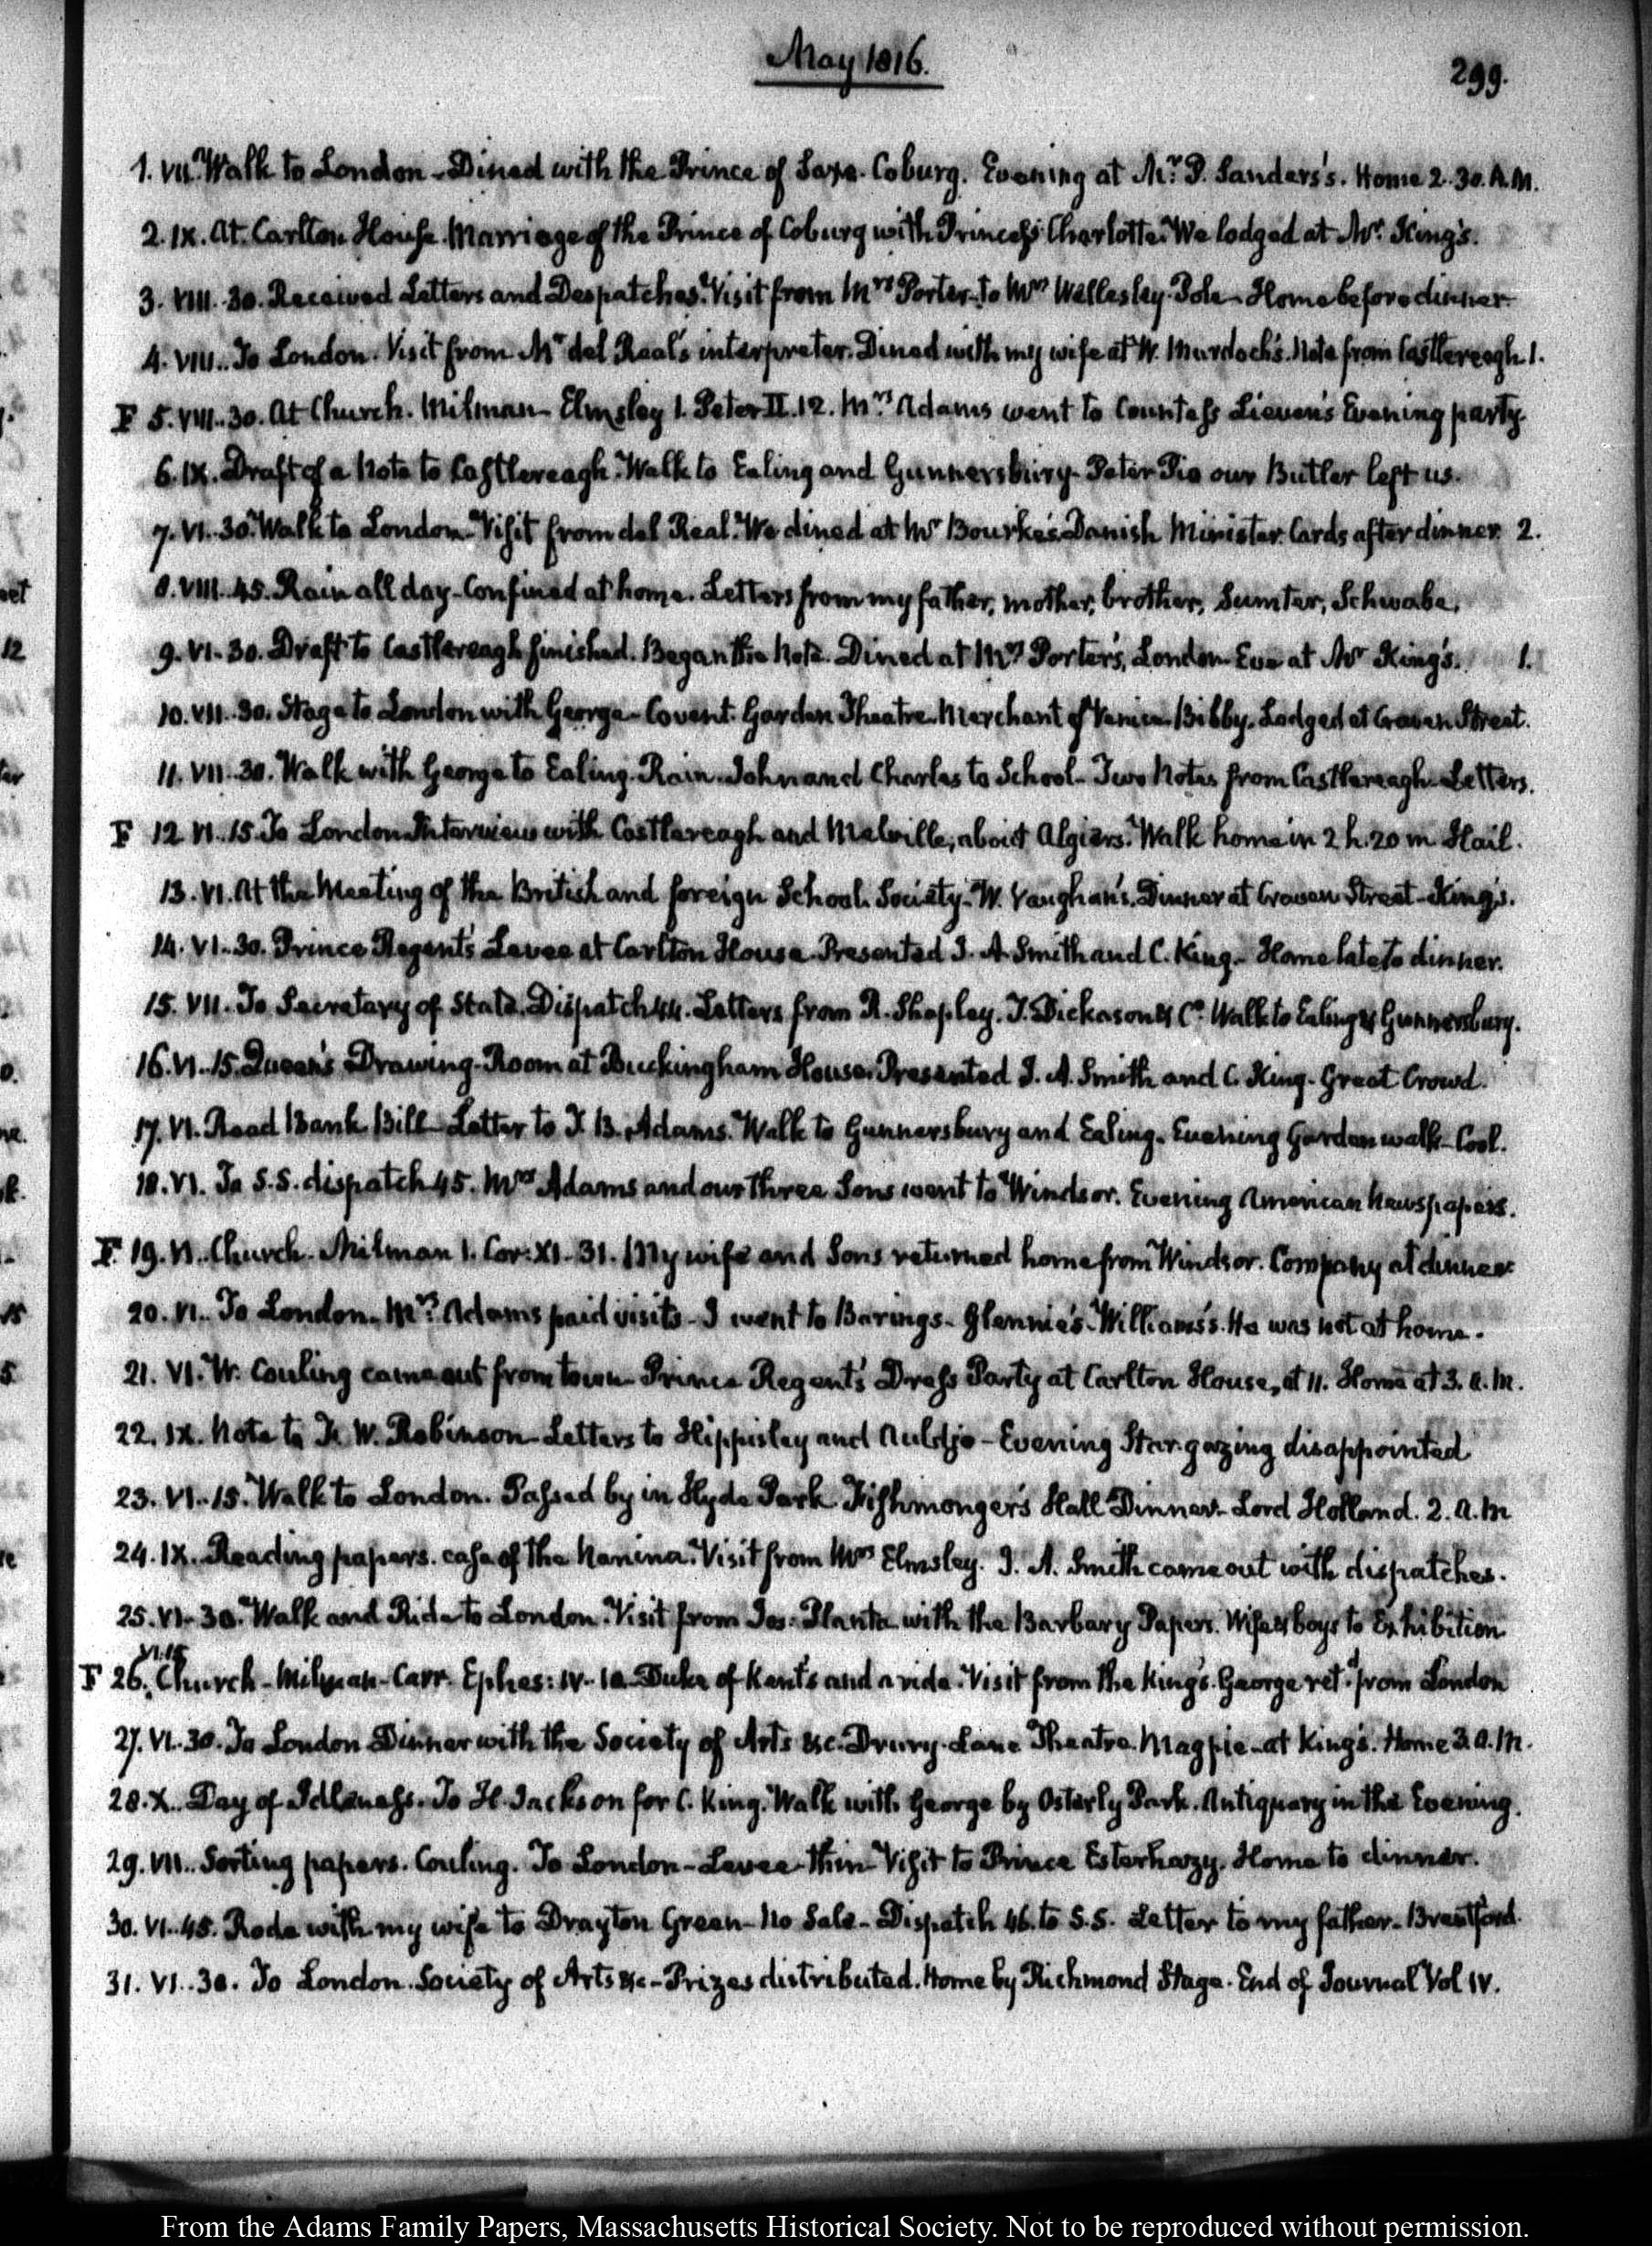 May 1816.
299.
1. VII. Walk to London - Dined with the Prince of Saxe-Coburg. Evening at Mr. P. Sanders's. Home 2.30. A.M.
2. IX. At Carlton House. Marriage of the Prince of Coburg with Princess Charlotte. We lodged at Mr. King's.
3. VIII.30. Received Letters and Despatches. Visit from Mrs Porter. To Mrs Wellesley-Pole - Home before dinner
4. VIII. To London. Visit from Mr del Real's interpreter. Dined with my wife at W. Murdock's. Note from Castlereagh. 1.
F 5. VIII.30. At Church. Milman - Elmsley 1. Peter II.12. Mrs Adams went to Countess Lieven's Evening party.
6. IX. Draft of a Note to Castlereagh. Walk to Ealing and Gunnersbury - Peter Pio our Butler left us.
7. VI.30. Walk to London - Visit from del Real. We dined at Mr Bourke's Danish Minister. Cards after dinner. 2.
8. VIII.45. Rain all day - Confined at home. Letters from my father, mother, brother, Sumter, Schwabe.
9. VI.30. Draft to Castlereagh finished. Began the Note. Dined at Mrs Porter's, London - Eve at Mr King's. 1.
10. VII.30. Stage to London with George - Covent-Garden Theatre. Merchant of Venice. Bibby. Lodged at Craven Street.
11. VII.30. Walk with George to Ealing. Rain. John and Charles to School - Two Notes from Castlereagh - Letters.
F 12. VI.15. To London. Interview with Castlereagh and Melville, about Algiers. Walk home in 2 h. 20 m Hail.
13. VI. At the Meeting of the British and foreign School Society. W. Vaughan's. Dinner at Craven Street - King's.
14. VI.30. Prince Regent's Levee at Carlton House. Presented J. A. Smith and C. King. - Home late to dinner.
15. VII. To Secretary of State. Dispatch 44. Letters from R. Shapley. T. Dickason & Co. Walk to Ealing & Gunnersbury.
16. VI.15. Queen's Drawing-Room at Buckingham House. Presented J. A. Smith and C. King - Great Crowd.
17. VI. Read Bank Bill - Letter to T. B. Adams. Walk to Gunnersbury and Ealing. Evening Garden walk - Cool.
18. VI. To S.S. dispatch 45. Mrs Adams and our three Sons went to Windsor. Evening American Newspapers.
F. 19. VI. Church. Milman 1. Cor: XI.31. My wife and Sons returned home from Windsor. Company at dinner
20. VI. To London. Mrs. Adams paid visits - I went to Barings - Glennie's - Williams's. He was not at home.
21. VI. W. Couling came out from town - Prince Regent's Dress Party at Carlton House, at 11. Home at 3. A.M.
22. IX. Note to F. W. Robinson - Letters to Hippisley and Auldjo - Evening Star-gazing disappointed
23. VI.15. Walk to London. Passed by in Hyde Park. Fishmonger's Hall Dinner - Lord Holland. 2. A.M
24. IX. Reading papers. case of the Nanina. Visit from Mrs Elmsley. J. A. Smith came out with dispatches.
25. VI.30. Walk and Ride to London. Visit from Jos: Planta with the Barbary Papers. Wife & boys to Exhibition
F 26. VI.15 Church - Milman - Carr. Ephes: IV. 10. Duke of Kent's and a ride. Visit from the King's. George retd. from London
27. VI.30. To London Dinner with the Society of Arts &c. Drury-Lane Theatre. Magpie - at King's. Home 3. A.M.
28. X. Day of Idleness. To H. Jackson for C. King. Walk with George by Osterly Park. Antiquary in the Evening.
29. VII. Sorting papers. Couling. To London - Levee thin - Visit to Prince Esterhazy. Home to dinner.
30. VI.45. Rode with my wife to Drayton Green - No Sale - Dispatch 46. to S.S. Letter to my father - Brentford.
31. VI.30. To London. Society of Arts &c - Prizes distributed. Home by Richmond Stage. End of Journal Vol IV.
From the Adams Family Papers, Massachusetts Historical Society. Not to be reproduced without permission.